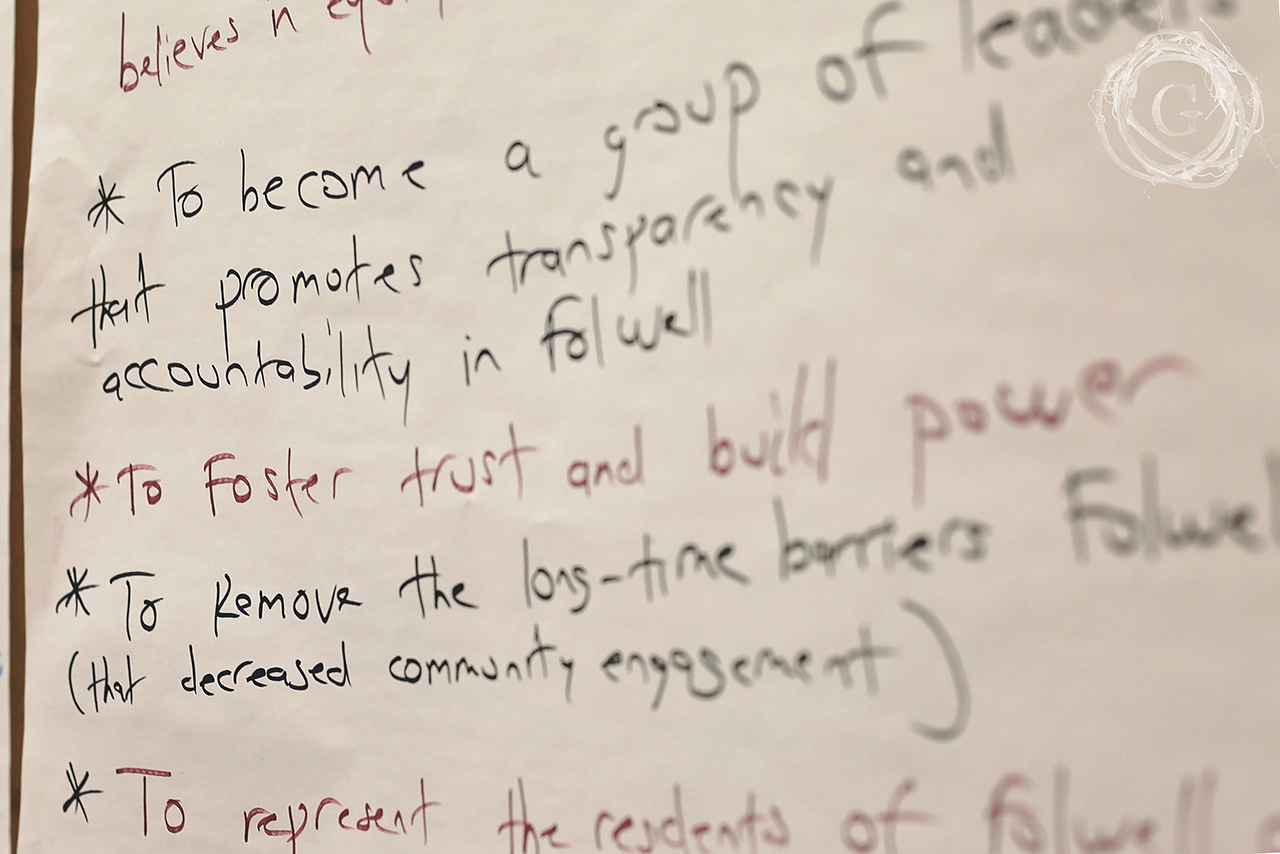 believes in
* To become a group of leaders
that promotes transparency and
accountability in Folwell
* To Foster trust and build power
* To Remove the long-time barriers Folwel
(that decreased community engagement)
* To represent the residents of Folwell
G